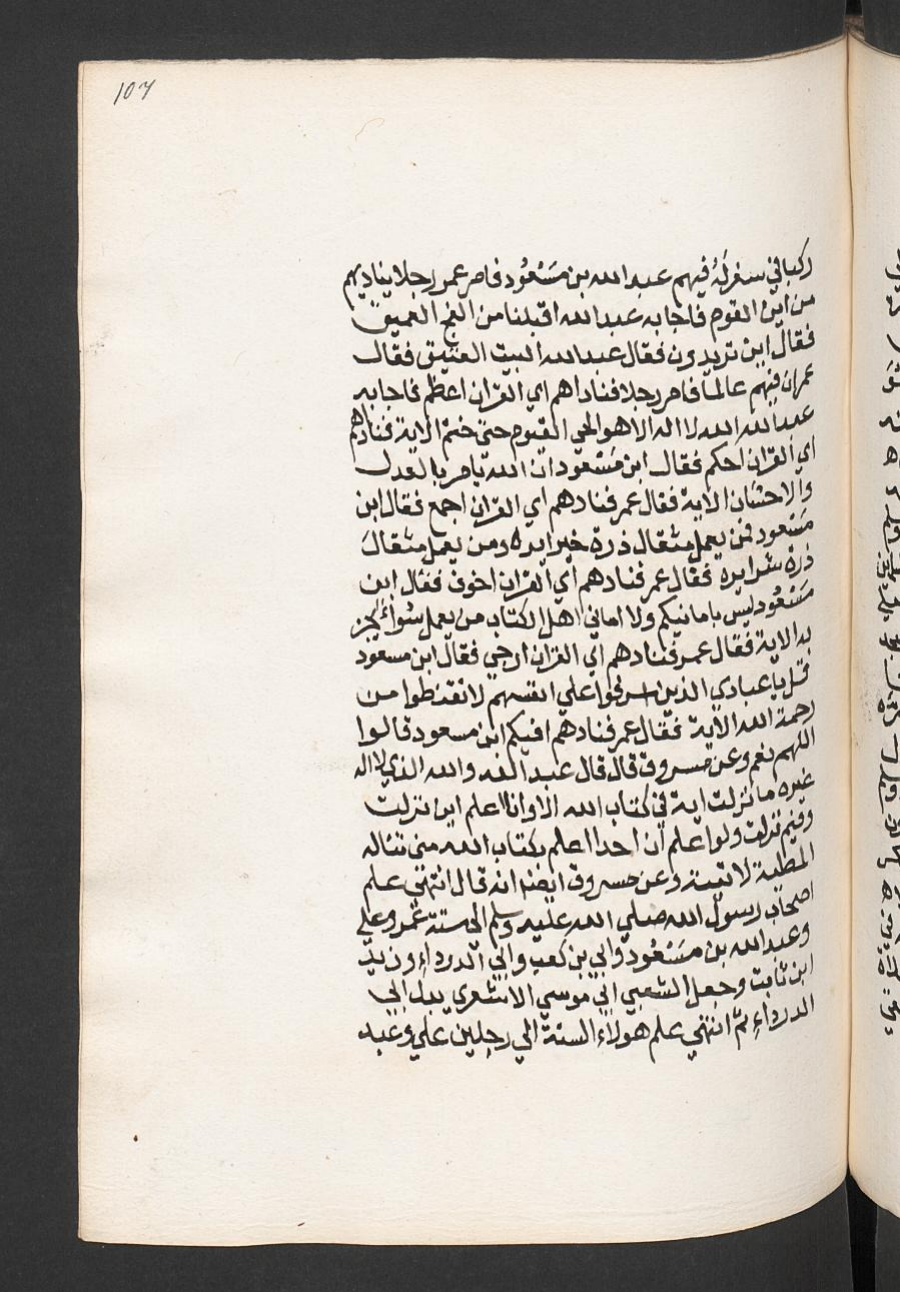 107
ركبا في سفر لَهُ فيهم عبد الله بن مَسْعُود فامر عمر رجلا يناديهم
من اين القوم فاجابه عبد الله اقبلنا من الفج العميق
فقال اين تريدون فقال عبد الله البيت العتيق فقال
عمر ان فيهم عالما فامر رجلا فناداهم اي القران اعظم فاجابه
عبد الله الله لا اله الا هو الحي القيوم حتى ختم الاية فنادهم
اي القران احكم فقال ابن مَسْعود ان الله يامر بالعدل
والاحسَان الاية فقال عمر فنادهم اي القران اجمع فقال ابن
مَسْعود فمن يعمل مثقال ذرة خيرا يره ومن يعمل مثقال
ذرة شرا يره فقال عمر فنادهم اي القران اخوف فقال ابن
مَسْعُود ليس بامانيكم ولا اماني اهل الكتاب من يعمل سُواً يجز
به الاية فقال عمر فنادهم اي القران ارجي فقال ابن مسعود
قل يا عبادي الذين اسرفوا علي انفسهم لا تقنطوا من
رحمة الله الاية فقال عمر فنادهم افيكم ابن مسعود قالوا
اللهم نعم وعن مسروق قال قال عبد الله والله الذي لا اله
غيره ما نزلت اية في كتاب الله الا وانا اعلم اين نزلت
وفيم نزلت ولو اعلم ان احدا اعلم بكتاب الله مني تناله
المطية لاتيته وعن مسروق ايضا انه قال انتهي علم
اصحاب رسول الله صلي الله عليه وسلم الي ستة عمر وعلي
وعبد الله بن مَسْعُود وابي بن كعب وابي الدرداء وزيد
ابن ثابت وجعل الشعبي ابي موسي الاشعري بدل ابي
الدرداء ثمَّ انتهي علم هولاء الستة الي رجلين علي وعبد